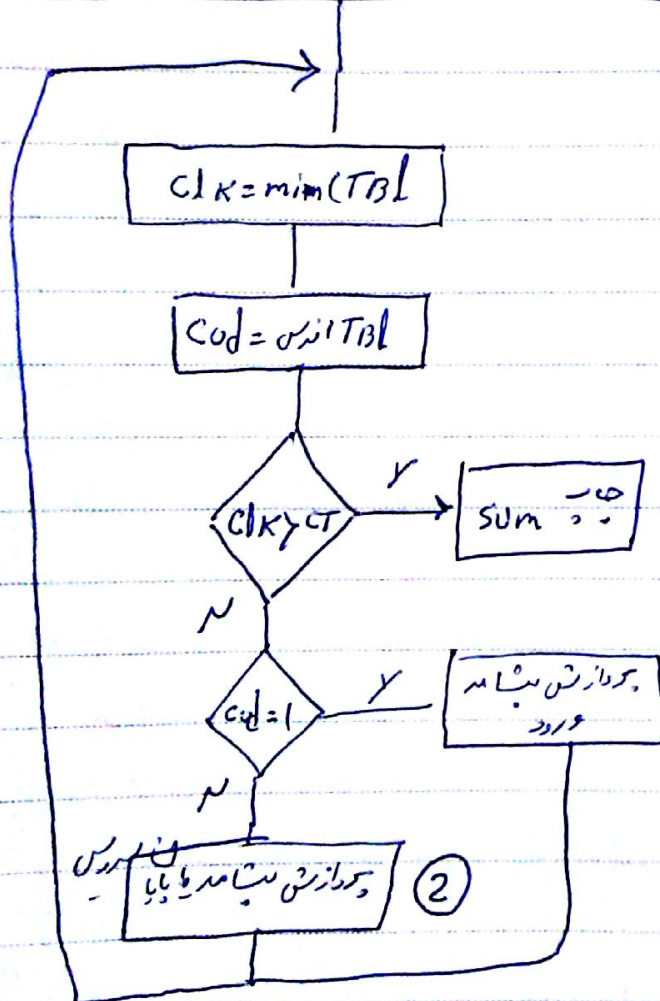 Clk=min(TBl
Cod = اندیس TBl
Clk>CT
Y
چاپ Sum
N
Cod=1
Y
پردازش پیشامد
ورود
N
سرویس
پردازش پیشامد پایا
2